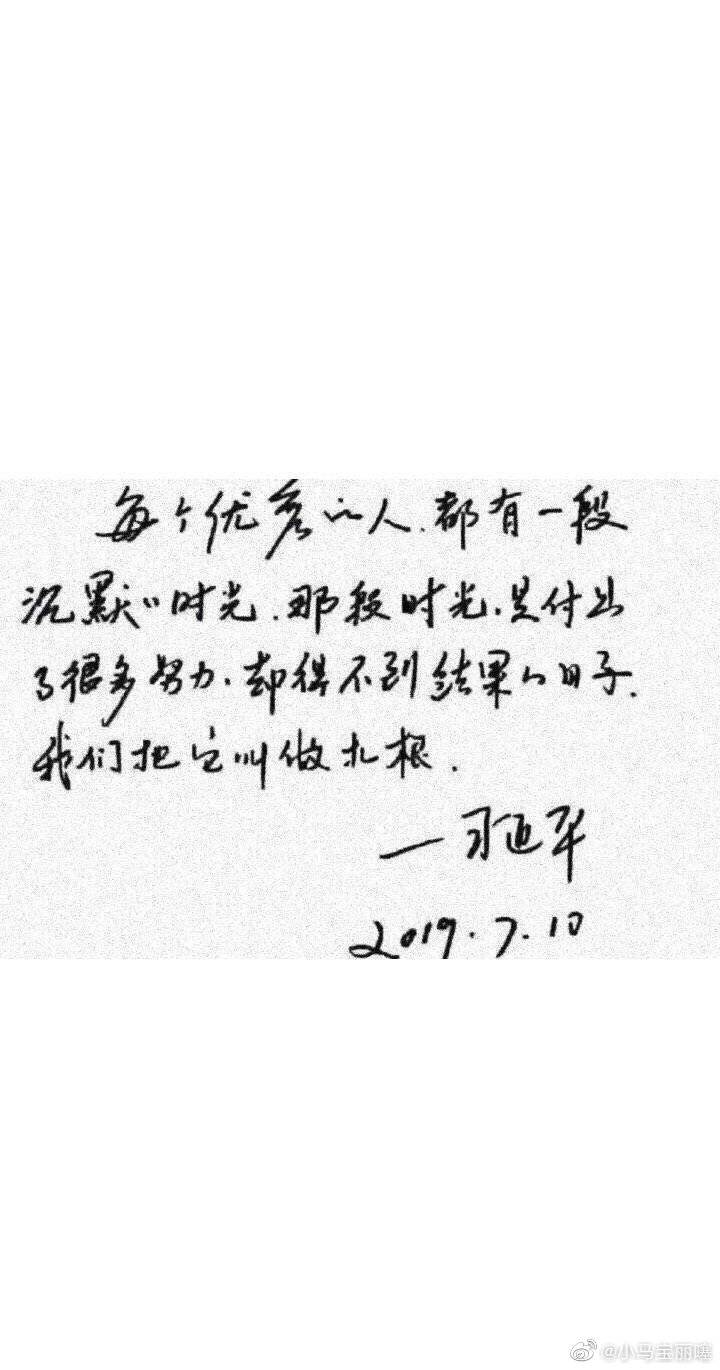 每个优秀的人.都有一段
沉默的时光.那段时光.是付出
了很多努力.却得不到结果的日子.
我们把它叫做扎根.
—习延华
2019.7.10
@小马宝丽噻